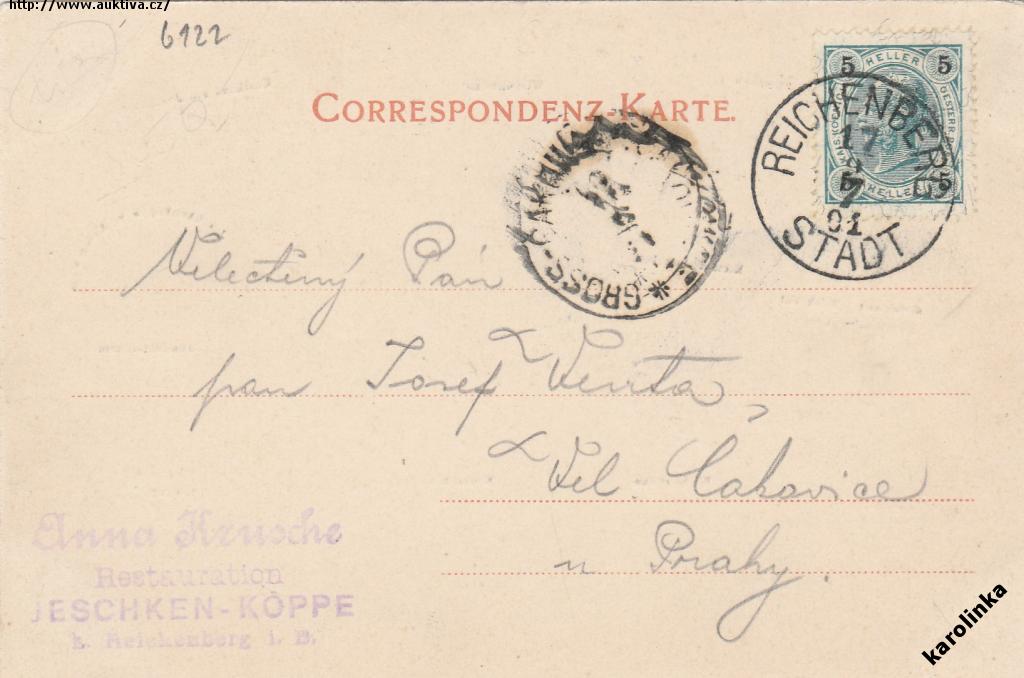 http://www.auktiva.cz/
6122
CORRESPONDENZ-KARTE.
5 HELLER 5
5 HELLER 5
REICHENBERG
17
7
01
STADT
GROSS-ČAK
Velectěný Pán
pan Josef Venta,
Vel. Čakovice
u Prahy.
Anna Krusche
Restauration
JESCHKEN-KOPPE
b. Reichenberg i. B.
karolinka